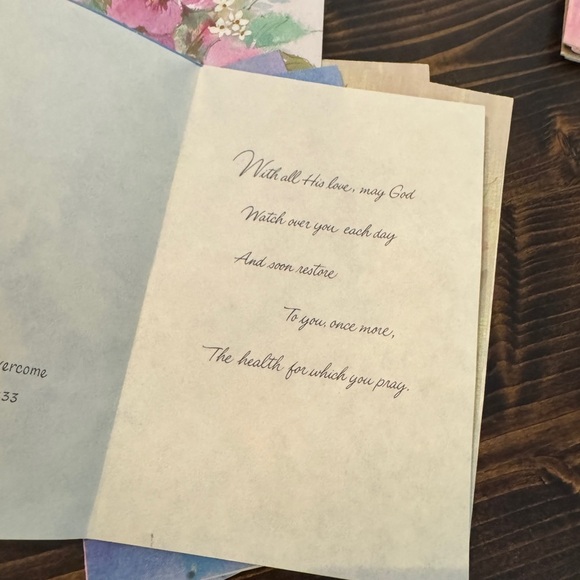 33
With all His love, may God
Watch over you each day
And soon restore
To you, once more,
The health for which you pray.